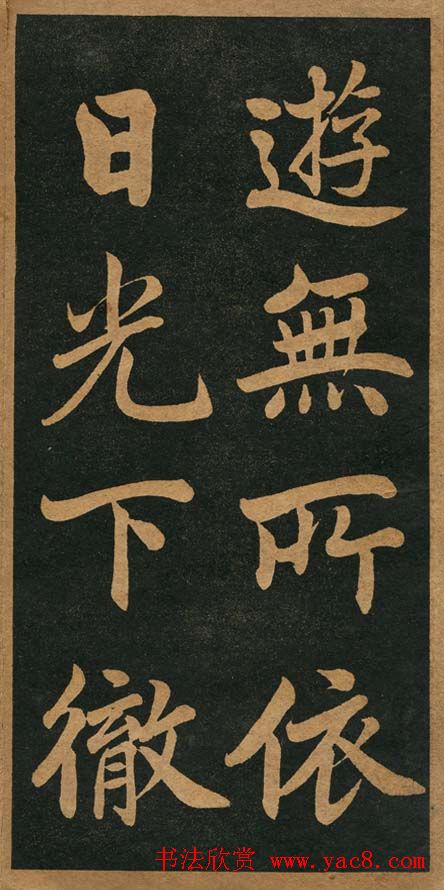 遊無所依
日光下徹
书法欣赏 www.yac8.com